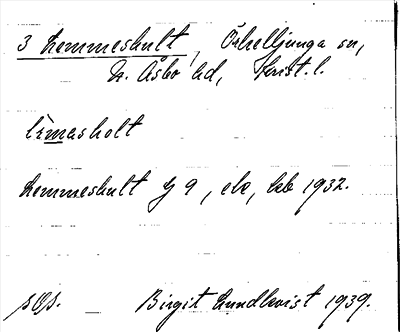 3 Lemmeshult, Örkelljunga sn,
N. Åsbo hd, Krist. l.
lìmasholt
Lemmeshult J 9, ek, kb 1932.
Birgit Lundkvist 1939.